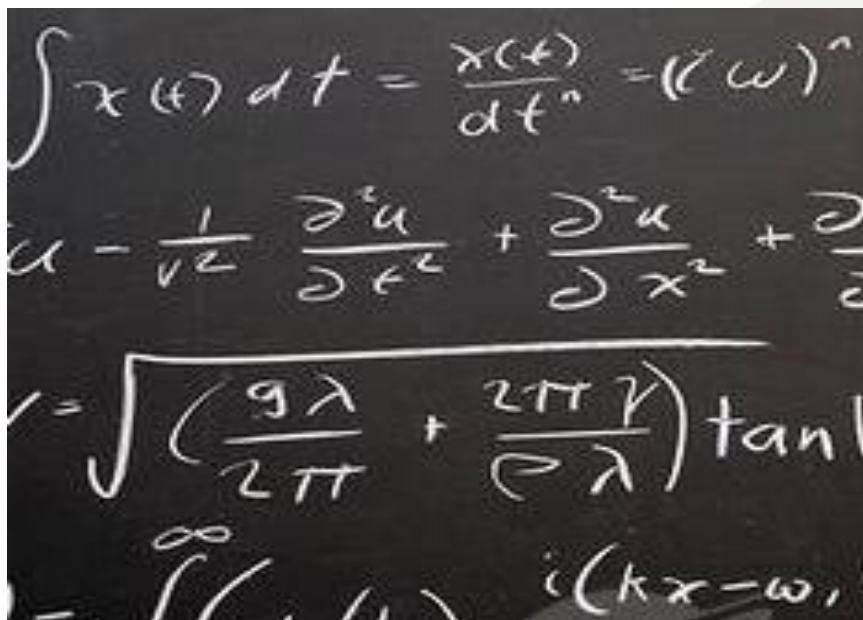 ∫ x(t) dt = x(t)/dtⁿ = (iω)ⁿ
u - 1/v² ∂²u/∂t² + ∂²u/∂x² + ∂/∂
= √(gλ/2π + 2πγ/ρλ) tan
∞
= ∫ ( i(kx-ω,